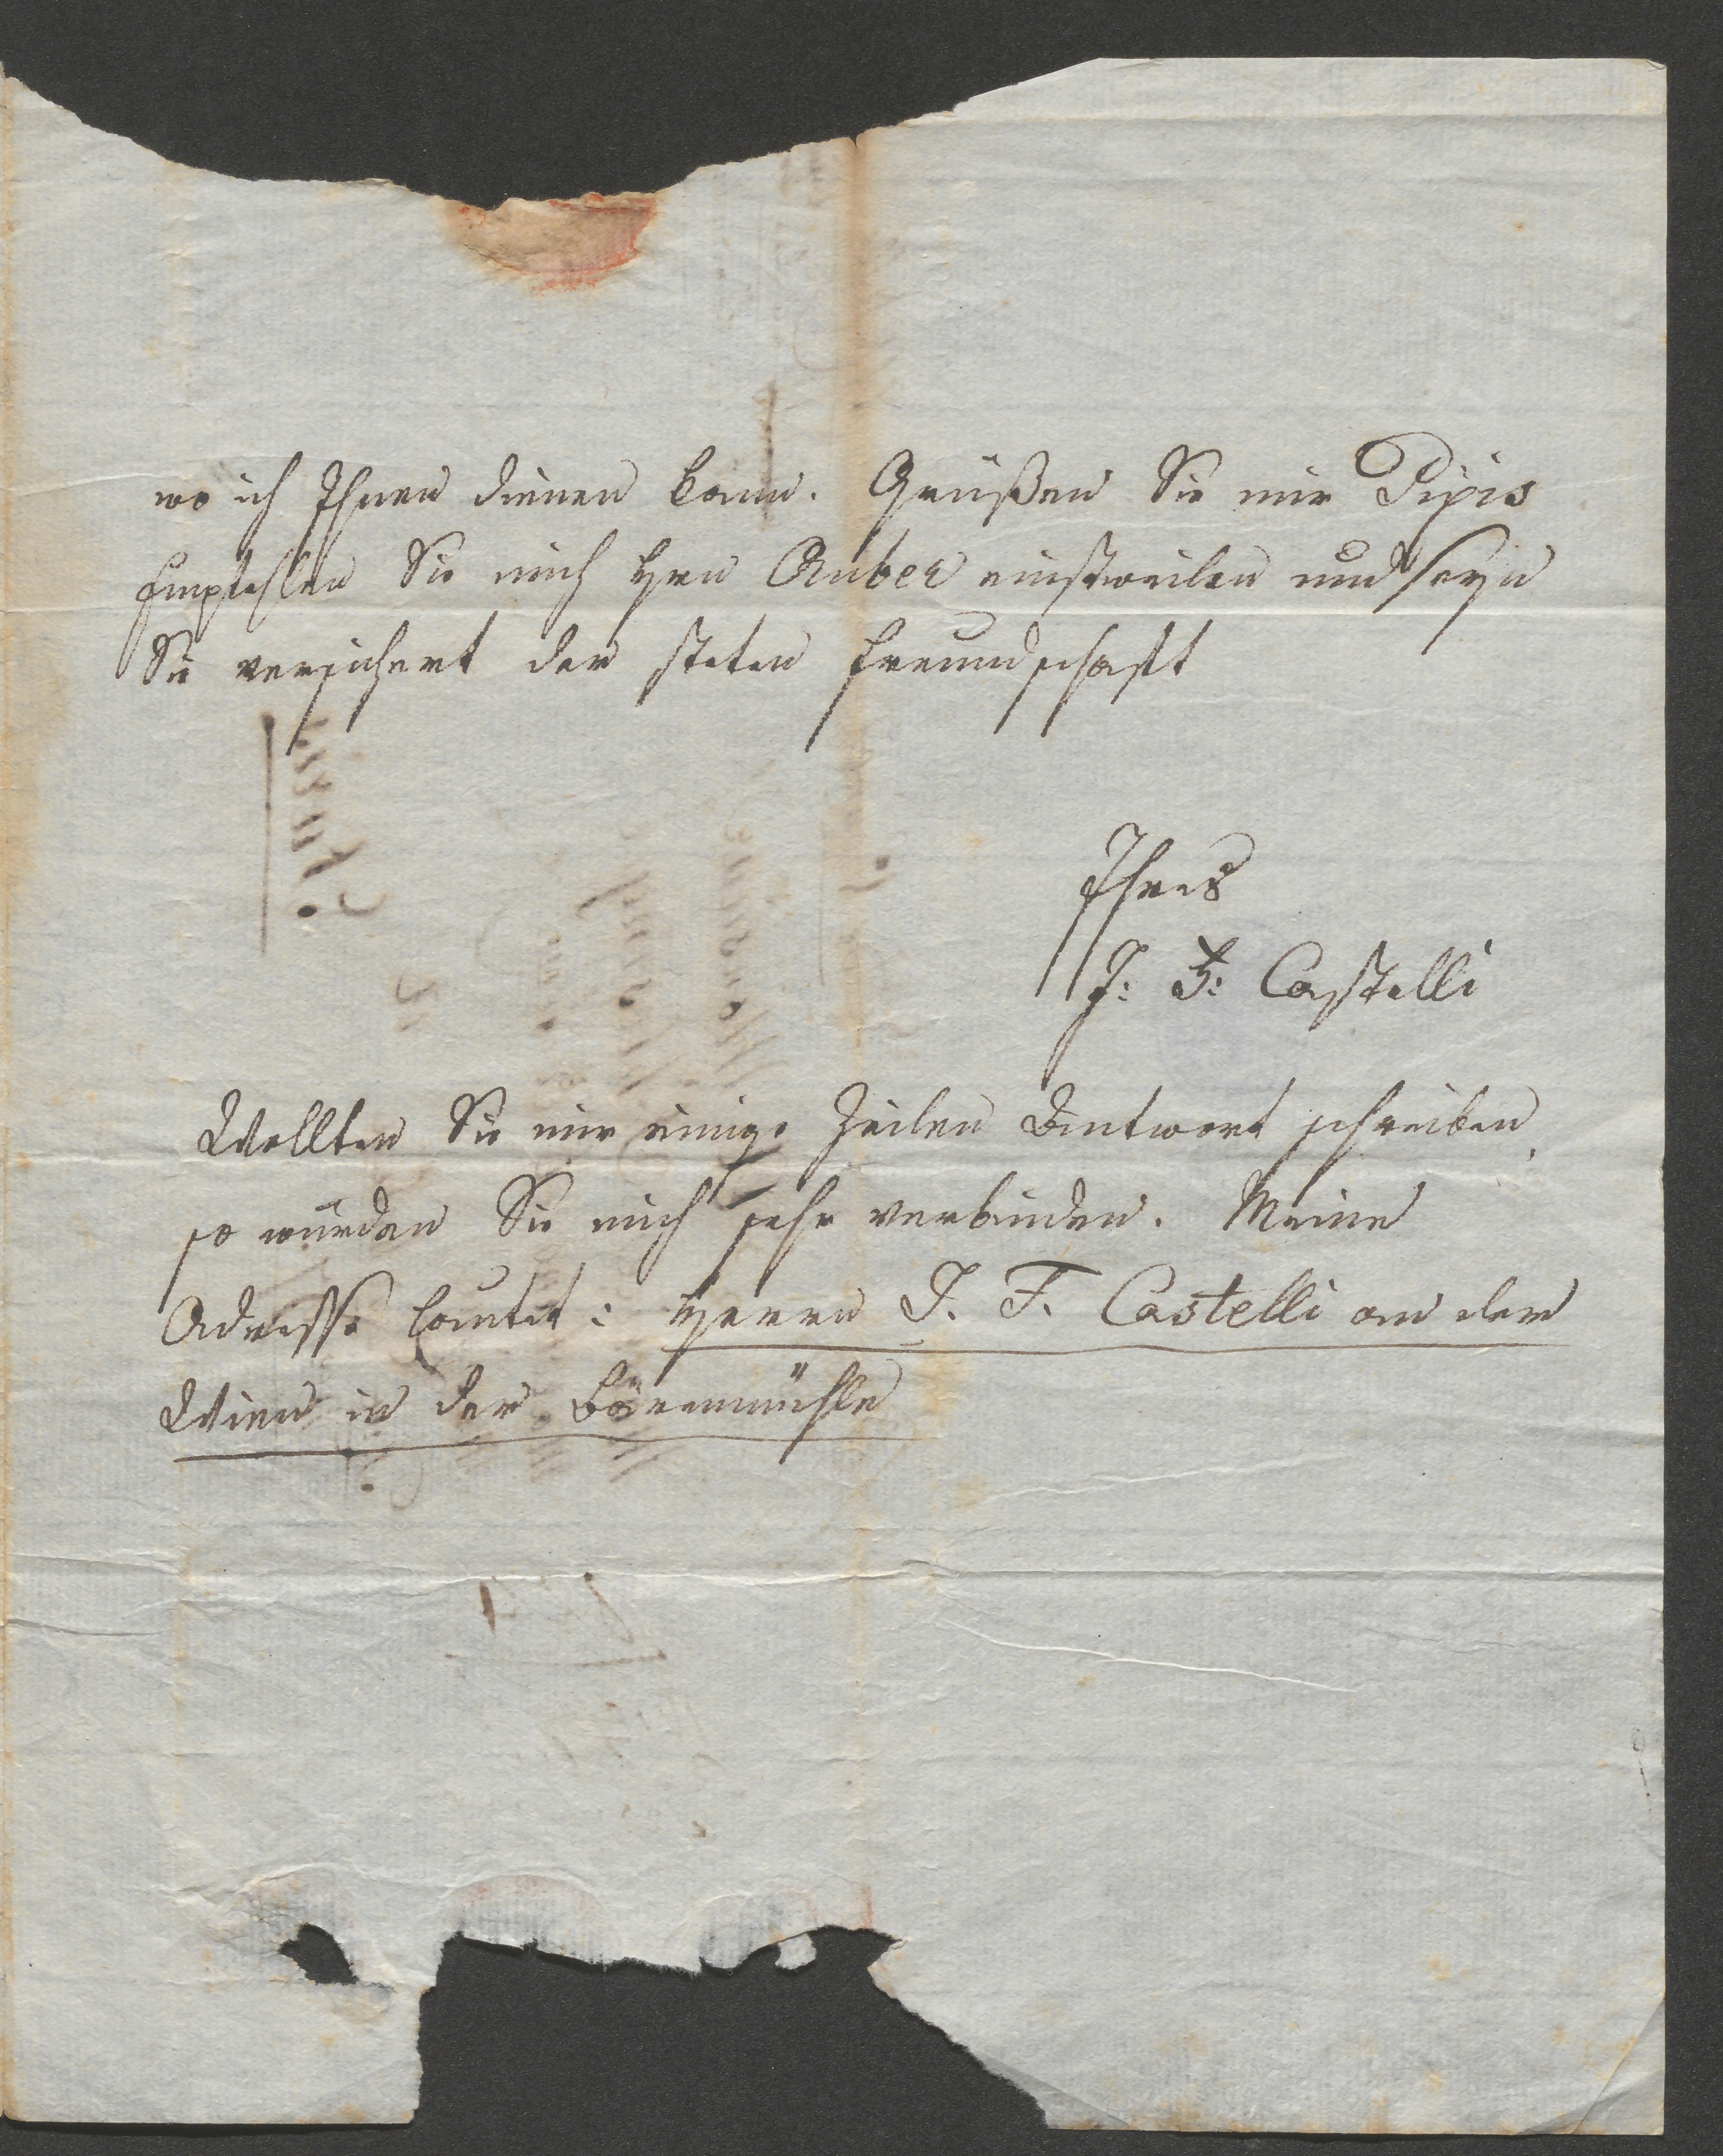 wo ich Ihnen dienen kann. Grüßen Sie mir Pixis
Empfehlen Sie mich Hrn Auber einstweilen und seyn
Sie versichert der steten Freundschaft
Ihres
J: F: Castelli
Wollten Sie mir einige Zeilen Antwort schreiben,
so würden Sie mich sehr verbinden. Meine
Adresse lautet: Herrn J. F. Castelli an der
Wien in der Bärenmühle